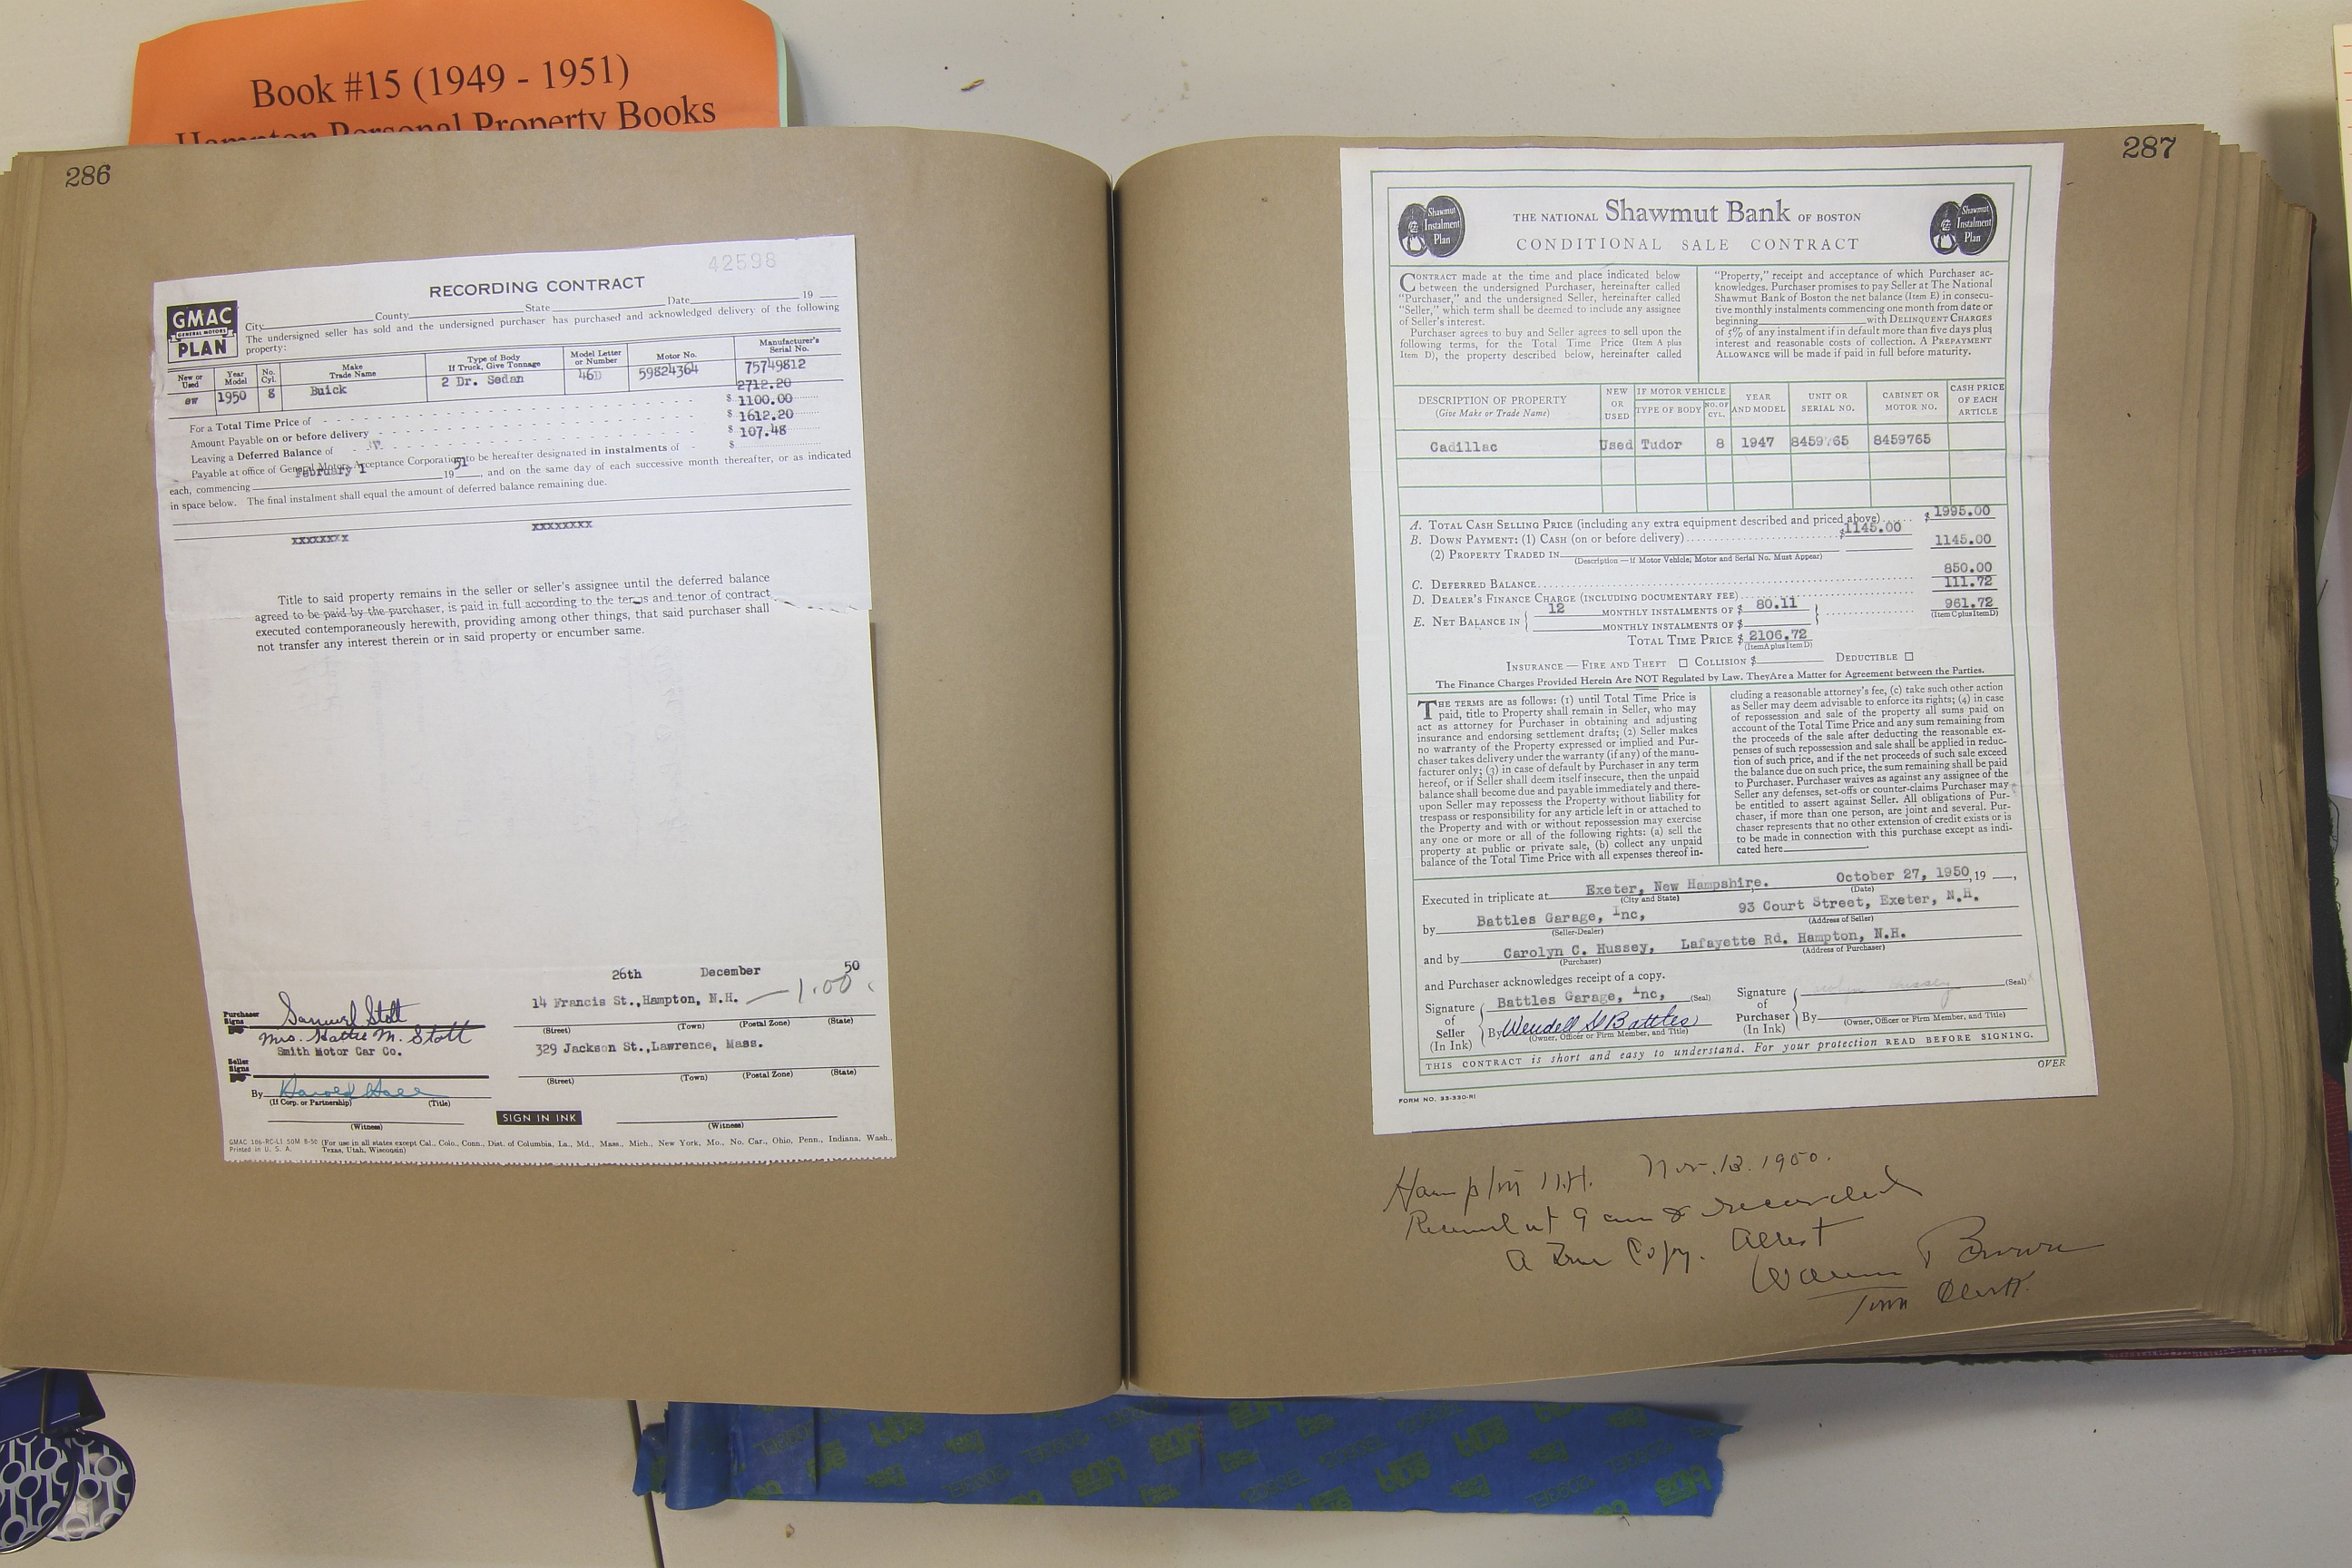 Book #15 (1949 - 1951)
Hampton Personal Property Books
286
42598
RECORDING CONTRACT
GMAC
GENERAL MOTORS
PLAN
City County State Date 19
The undersigned seller has sold and the undersigned purchaser has purchased and acknowledged delivery of the following
property:
New or Used Year Model No. Cyl. Make Trade Name Type of Body If Truck, Give Tonnage Model Letter or Number Motor No. Manufacturer's Serial No.
ew 1950 8 Buick 2 Dr. Sedan 46D 59824364 75749812
For a Total Time Price of 2712.20
Amount Payable on or before delivery $ 1100.00
Leaving a Deferred Balance of $ 1612.20
Payable at office of General Motors Acceptance Corporation to be hereafter designated in instalments of $ 107.48
$
each, commencing February 1 1951, and on the same day of each successive month thereafter, or as indicated
in space below. The final instalment shall equal the amount of deferred balance remaining due.
xxxxxxxx xxxxxxxx
Title to said property remains in the seller or seller's assignee until the deferred balance
agreed to be paid by the purchaser, is paid in full according to the terms and tenor of contract
executed contemporaneously herewith, providing among other things, that said purchaser shall
not transfer any interest therein or in said property or encumber same.
26th December 50
14 Francis St.,Hampton, N.H. — 1.00
Purchaser Signs Samuel Stott
(Street) (Town) (Postal Zone) (State)
Mrs. Hattie M. Stott
Smith Motor Car Co. 329 Jackson St.,Lawrence, Mass.
Seller Signs
(Street) (Town) (Postal Zone) (State)
By Harold Hall
(If Corp. or Partnership) (Title)
SIGN IN INK
(Witness) (Witness)
GMAC 106-RC-L1 50M 8-50 (For use in all states except Cal., Colo., Conn., Dist. of Columbia, Ia., Md., Mass., Mich., New York, Mo., No. Car., Ohio, Penn., Indiana, Wash.,
Printed in U. S. A. Texas, Utah, Wisconsin)
287
Shawmut Instalment Plan
THE NATIONAL Shawmut Bank OF BOSTON
Shawmut Instalment Plan
CONDITIONAL SALE CONTRACT
CONTRACT made at the time and place indicated below
between the undersigned Purchaser, hereinafter called
"Purchaser," and the undersigned Seller, hereinafter called
"Seller," which term shall be deemed to include any assignee
of Seller's interest.
Purchaser agrees to buy and Seller agrees to sell upon the
following terms, for the Total Time Price (Item A plus
Item D), the property described below, hereinafter called
"Property," receipt and acceptance of which Purchaser ac-
knowledges. Purchaser promises to pay Seller at The National
Shawmut Bank of Boston the net balance (Item E) in consecu-
tive monthly instalments commencing one month from date or
beginning with DELINQUENT CHARGES
of 5% of any instalment if in default more than five days plus
interest and reasonable costs of collection. A PREPAYMENT
ALLOWANCE will be made if paid in full before maturity.
DESCRIPTION OF PROPERTY (Give Make or Trade Name) NEW OR USED IF MOTOR VEHICLE TYPE OF BODY NO. OF CYL. YEAR AND MODEL UNIT OR SERIAL NO. CABINET OR MOTOR NO. CASH PRICE OF EACH ARTICLE
Cadillac Used Tudor 8 1947 8459765 8459765
A. TOTAL CASH SELLING PRICE (including any extra equipment described and priced above) $ 1995.00
B. DOWN PAYMENT: (1) CASH (on or before delivery) $1145.00
(2) PROPERTY TRADED IN 1145.00
(Description—if Motor Vehicle; Motor and Serial No. Must Appear)
C. DEFERRED BALANCE 850.00
D. DEALER'S FINANCE CHARGE (INCLUDING DOCUMENTARY FEE) 111.72
E. NET BALANCE IN 12 MONTHLY INSTALMENTS OF $ 80.11 961.72
MONTHLY INSTALMENTS OF $ (Item C plus Item D)
TOTAL TIME PRICE $ 2106.72
(Item A plus Item D)
INSURANCE — FIRE AND THEFT ☐ COLLISION $ DEDUCTIBLE ☐
The Finance Charges Provided Herein Are NOT Regulated by Law. They Are a Matter for Agreement between the Parties.
THE TERMS are as follows: (1) until Total Time Price is
paid, title to Property shall remain in Seller, who may
act as attorney for Purchaser in obtaining and adjusting
insurance and endorsing settlement drafts; (2) Seller makes
no warranty of the Property expressed or implied and Pur-
chaser takes delivery under the warranty (if any) of the manu-
facturer only; (3) in case of default by Purchaser in any term
hereof, or if Seller shall deem itself insecure, then the unpaid
balance shall become due and payable immediately and there-
upon Seller may repossess the Property without liability for
trespass or responsibility for any article left in or attached to
the Property and with or without repossession may exercise
any one or more or all of the following rights: (a) sell the
property at public or private sale, (b) collect any unpaid
balance of the Total Time Price with all expenses thereof in-
cluding a reasonable attorney's fee, (c) take such other action
as Seller may deem advisable to enforce its rights; (4) in case
of repossession and sale of the property all sums paid on
account of the Total Time Price and any sum remaining from
the proceeds of the sale after deducting the reasonable ex-
penses of such repossession and sale shall be applied in reduc-
tion of such price, and if the net proceeds of such sale exceed
the balance due on such price, the sum remaining shall be paid
to Purchaser. Purchaser waives as against any assignee of the
Seller any defenses, set-offs or counter-claims Purchaser may
be entitled to assert against Seller. All obligations of Pur-
chaser, if more than one person, are joint and several. Pur-
chaser represents that no other extension of credit exists or is
to be made in connection with this purchase except as indi-
cated here
Executed in triplicate at Exeter, New Hampshire. October 27, 1950, 19 ,
(City and State) (Date)
by Battles Garage, Inc, 93 Court Street, Exeter, N.H.
(Seller-Dealer) (Address of Seller)
and by Carolyn C. Hussey, Lafayette Rd. Hampton, N.H.
(Purchaser) (Address of Purchaser)
and Purchaser acknowledges receipt of a copy.
Signature of Seller (In Ink) Battles Garage, Inc, (Seal)
By Wendell S Battles
(Owner, Officer or Firm Member, and Title)
Signature of Purchaser (In Ink) Hussey (Seal)
By
(Owner, Officer or Firm Member, and Title)
THIS CONTRACT is short and easy to understand. For your protection READ BEFORE SIGNING.
OVER
FORM NO. 33-330-RI
Hampton N.H. Nov. 13. 1950.
Received at 9 am & recorded
A True Copy. Attest
Brown
Town Clerk.